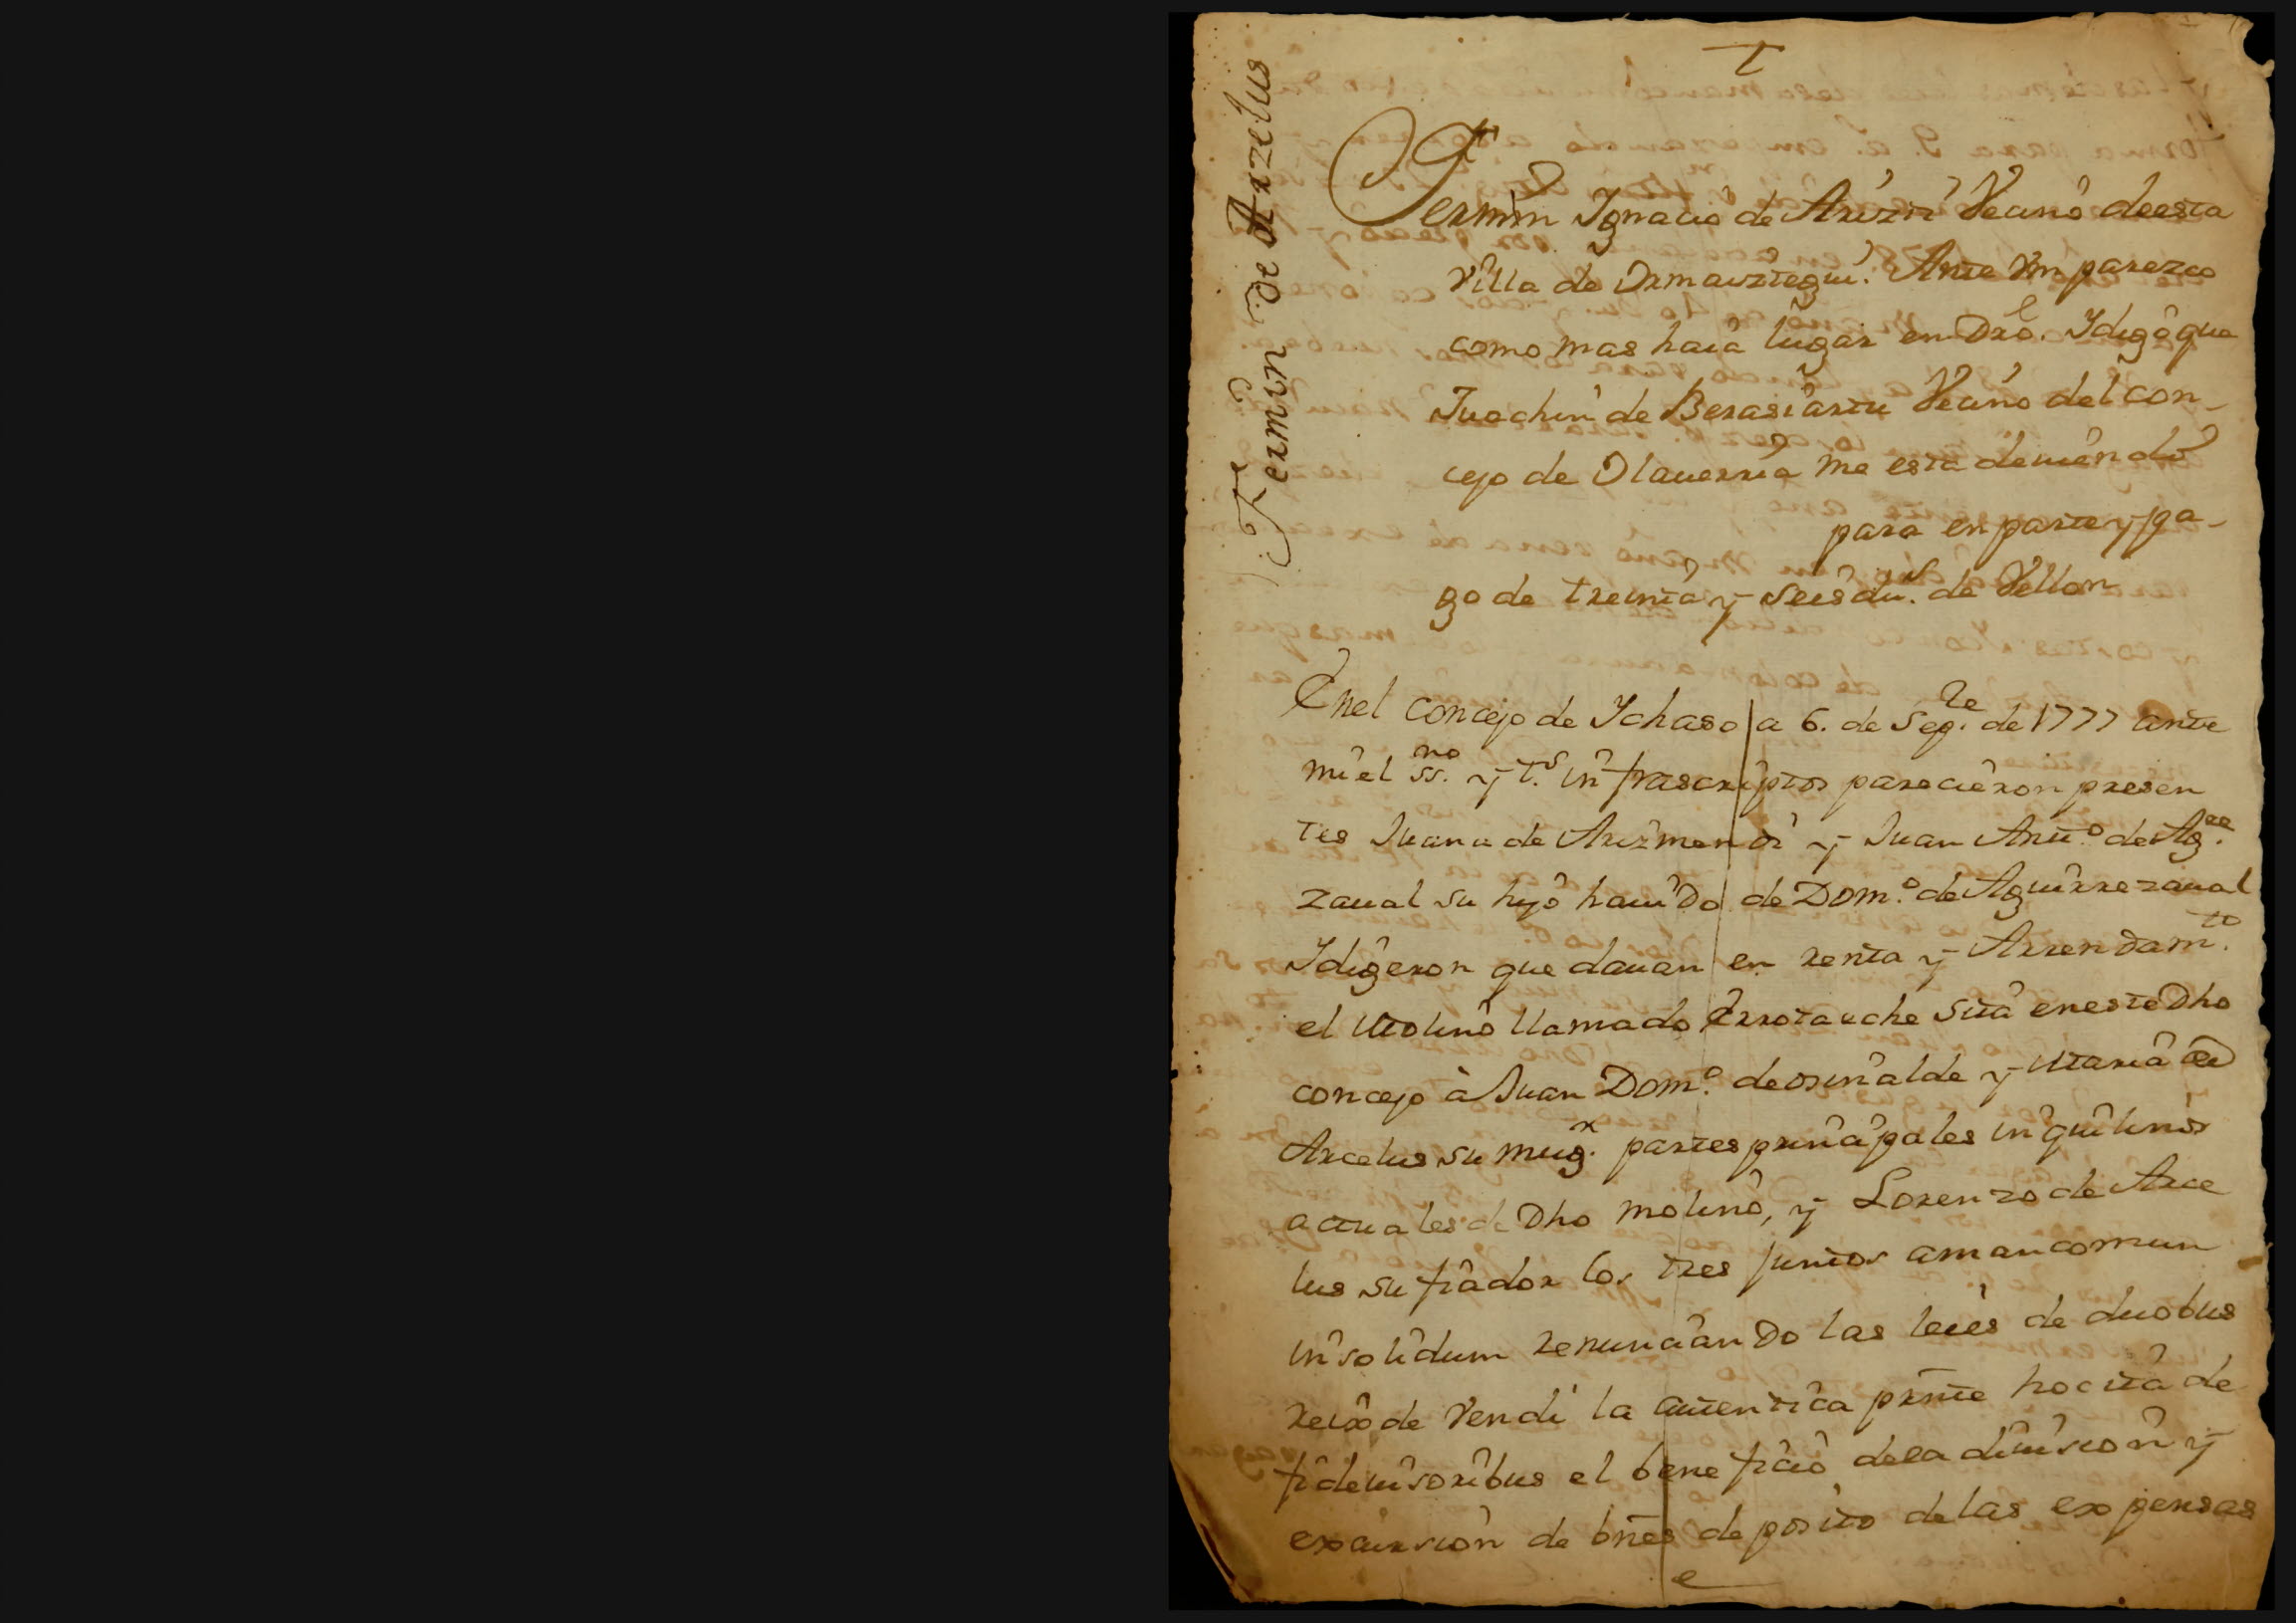 Fermin de Arzelus
Fermin Ignacio de Arizti Vecino de esta
Villa de Ormaiztegui. Ante Vm parezco
como mas haia lugar en Dro. Y digo que
Juachin de Berasiartu Vecino del con-
cejo de Olaverria me esta deviendo
para en parte y pa-
go de treinta y seis du.s de Vellon
Enel concejo de Ychaso a 6. de Sep.re de 1777 ante
mi el ss.no y t.s infrascriptos parecieron presen
tes Juana de Arizmendi y Juan Antt.o de Ag.rre
zaual su hijo hauido de Dom.o de Aguirrezaual
Y digeron que dauan en renta y Arrendam.to
el Molino llamado Errotaeche sita en este Dho
concejo à Juan Dom.o de osinalde y Maria de
Arcelus su mug.r partes principales inquilinos
actuales de Dho molino, y Lorenzo de Arce
lus su fiador los tres juntos amancomun
insolidum renunciando las leies de duobus
reix de vendi la autentica prnte hocita de
fideiusoribus el beneficio dela diuision y
excursion de bnes deposito de las expensas